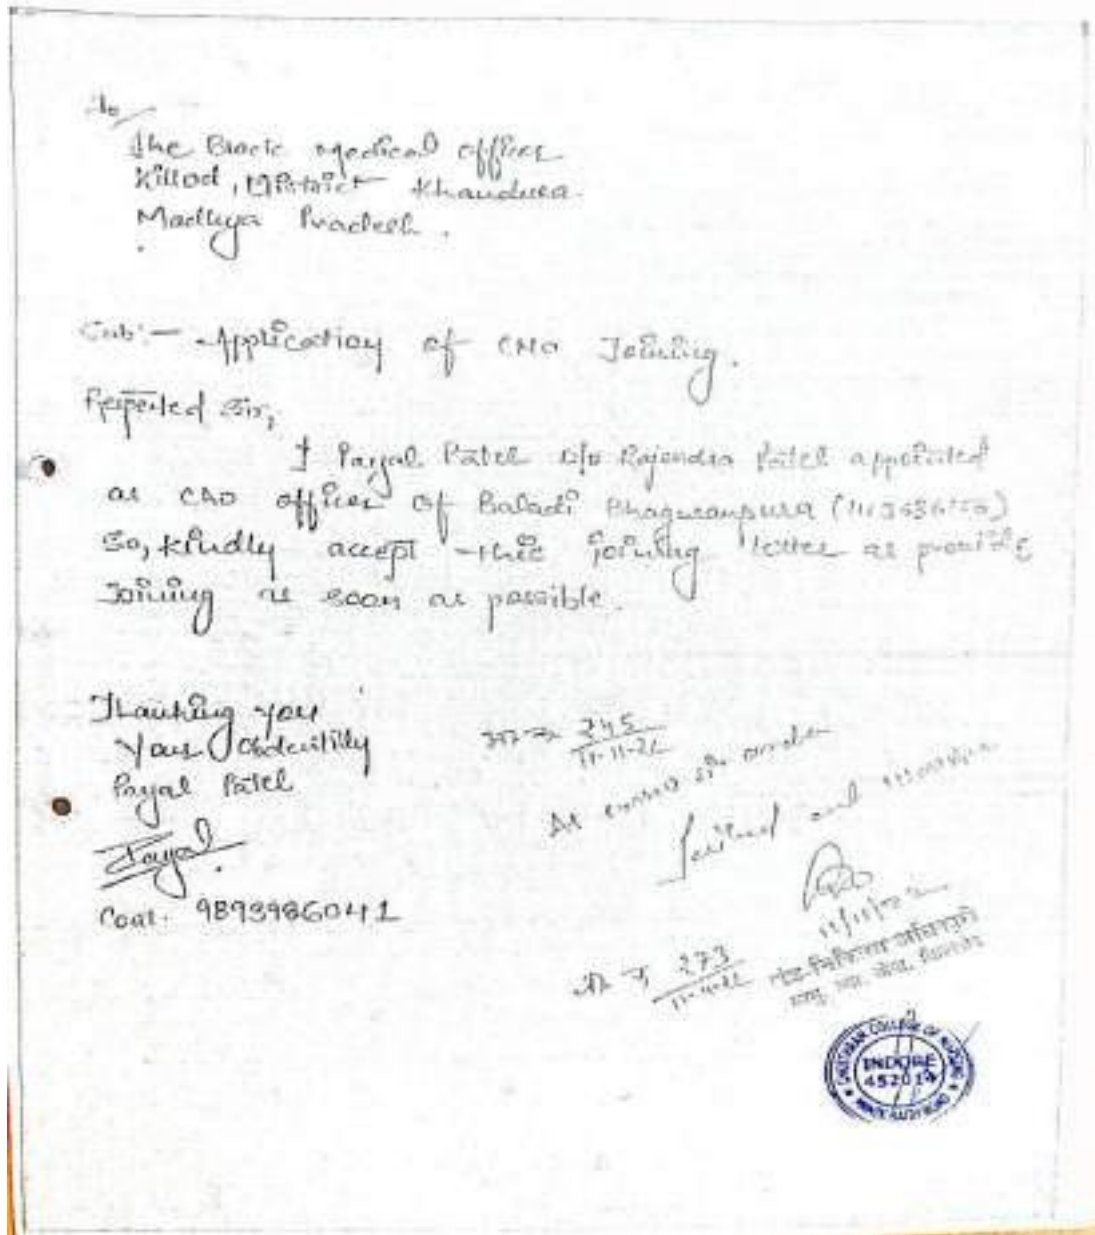 To
The Block medical officer
Killod, District Khandwa.
Madhya Pradesh.
Sub:- Application of CHO Joining.
Respected Sir,
I Payal Patel D/o Rajendra Patel appointed
as CHO officer of Baladi Bhagwanpura
So, kindly accept this joining letter as provide
Joining as soon as possible.
Thanking you
Your Obdeintly
Payal Patel
Payal
Cont. 9893986041
245
11-11-22
273
11-11-22
11/11/2022
खंड चिकित्सा अधिकारी
CHOITHRAM COLLEGE OF NURSING
INDORE
452014
MANIK BAGH ROAD